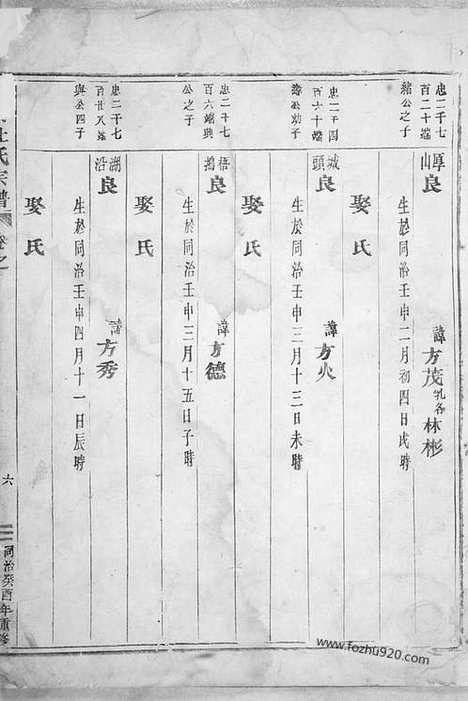 忠二千七
百二十端
緒公之子
厚山
良
諱方茂乳名林彬
生於同治壬申二月初四日戌時
娶氏
忠二千四
百六十端
公幼子
城頭
良
諱方火
生於同治壬申三月十三日未時
娶氏
忠二千七
百六端興
公之子
梧
良
諱方德
生於同治壬申三月十五日子時
娶氏
忠二千七
百廿八端
與公四子
湖沿
良
諱方秀
生於同治壬申四月十一日辰時
娶氏
氏宗譜
卷之
六
同治癸酉年重修
www.fozhu920.com